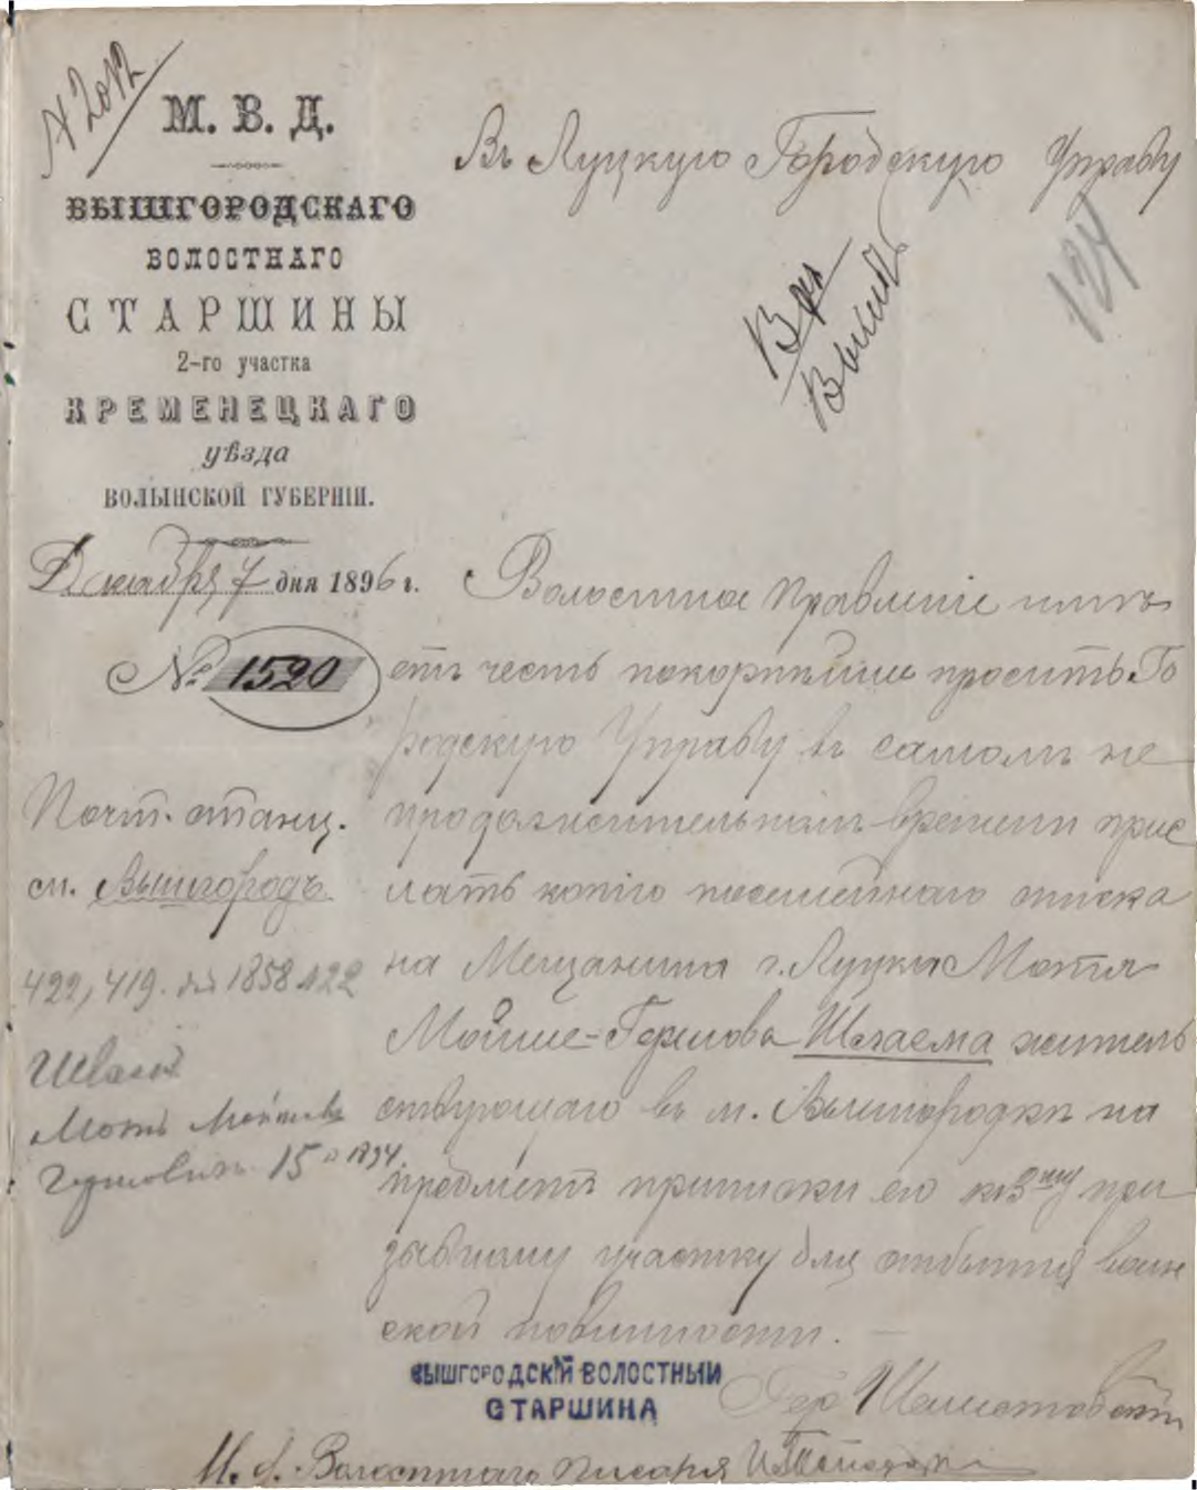 № 2012
М. В. Д.
ВЫШГОРОДСКАГО
ВОЛОСТНАГО
СТАРШИНЫ
2-го участка
КРЕМЕНЕЦКАГО
уѣзда
ВОЛЫНСКОЙ ГУБЕРНІИ.
Декабря 7 дня 1896 г.
№ 1520
Почт. станц.
м. Вышгородъ.
422, 419. 1858 №22
15 1894
Въ Луцкую Городскую Управу
124
Волостное Правленіе имѣ
етъ честь покорнѣйше просить Го
родскую Управу въ самомъ не
продолжительномъ времени прис
лать копію посемейнаго списка
на Мещанина г. Луцка Мотя
Мойше-Гершова жительс
твующаго въ м. Вышгородкѣ на
предметъ приписки его къ 3му при
зывному участку для отбытія воин
ской повинности.
ВЫШГОРОДСКІЙ ВОЛОСТНЫЙ
СТАРШИНА
И. д. Волостнаго Писаря